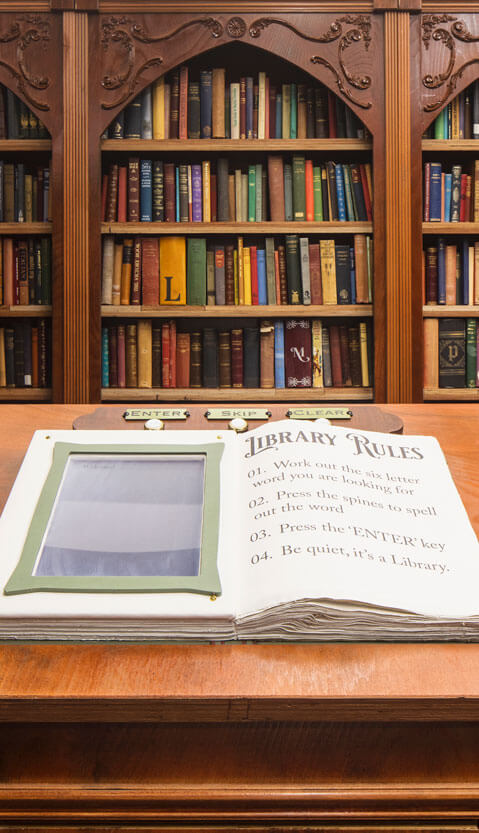 L
N
P
ENTER SKIP CLEAR
LIBRARY RULES
01. Work out the six letter
word you are looking for
02. Press the spines to spell
out the word
03. Press the 'ENTER' key
04. Be quiet, it's a Library.